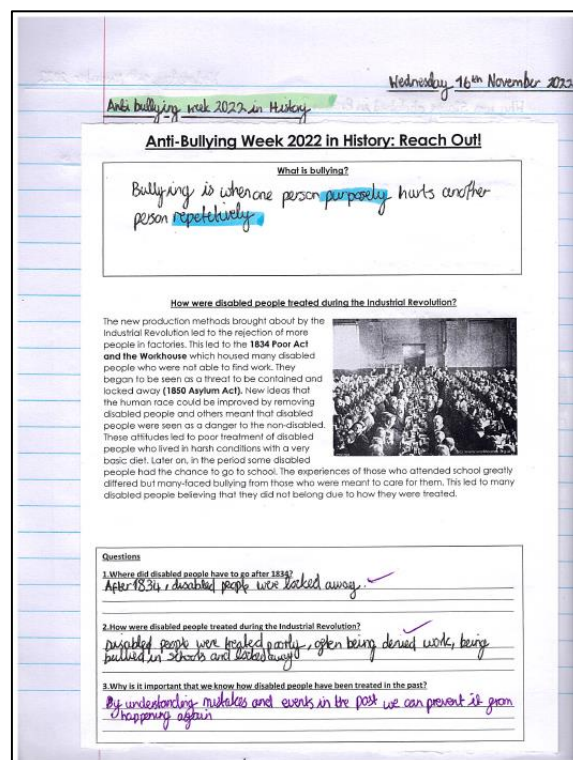 Wednesday 16th November 2022
Anti bullying week 2022 in History
Anti-Bullying Week 2022 in History: Reach Out!
What is bullying?
Bullying is when one person purposely hurts another
person repetetively
How were disabled people treated during the Industrial Revolution?
The new production methods brought about by the
Industrial Revolution led to the rejection of more
people in factories. This led to the 1834 Poor Act
and the Workhouse which housed many disabled
people who were not able to find work. They
began to be seen as a threat to be contained and
locked away (1850 Asylum Act). New ideas that
the human race could be improved by removing
disabled people and others meant that disabled
people were seen as a danger to the non-disabled.
These attitudes led to poor treatment of disabled
people who lived in harsh conditions with a very
basic diet. Later on, in the period some disabled
people had the chance to go to school. The experiences of those who attended school greatly
differed but many-faced bullying from those who were meant to care for them. This led to many
disabled people believing that they did not belong due to how they were treated.
Questions
1.Where did disabled people have to go after 1834?
After 1834, disabled people were locked away.
2.How were disabled people treated during the Industrial Revolution?
Disabled people were treated poorly, often being denied work, being
bullied in schools and locked away
3.Why is it important that we know how disabled people have been treated in the past?
By understanding mistakes and events in the past we can prevent it from
happening again